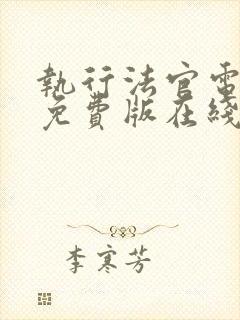 執行法官電
免費版在綫
李寒芳